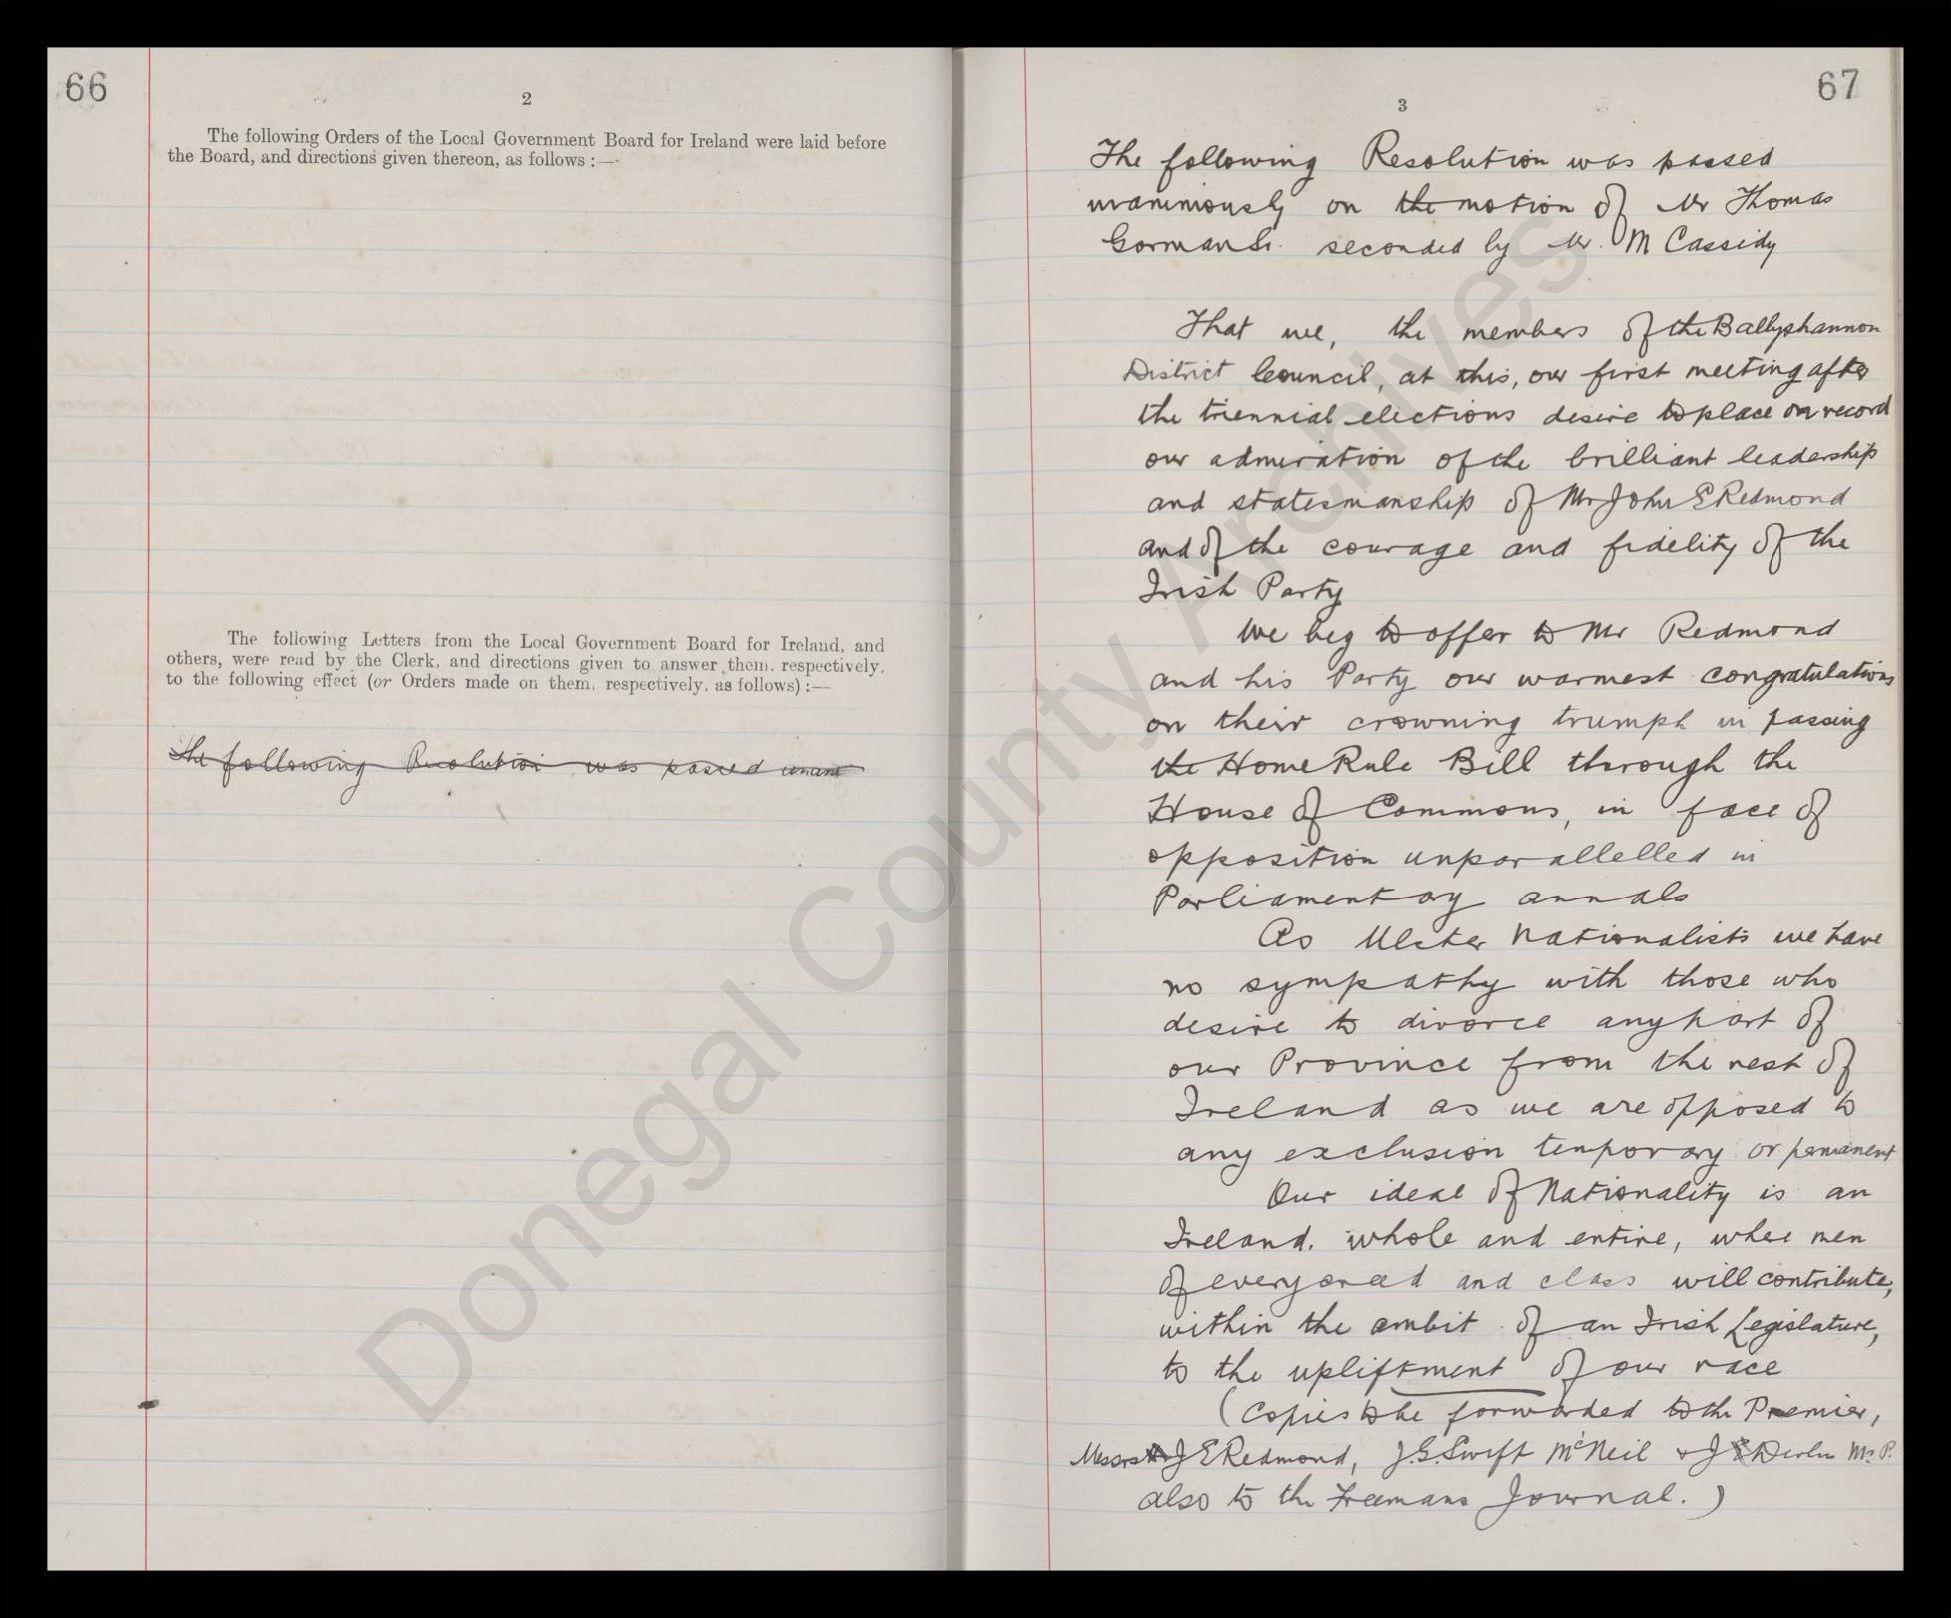 66
2
The following Orders of the Local Government Board for Ireland were laid before
the Board, and directions given thereon, as follows :—
The following Letters from the Local Government Board for Ireland, and
others, were read by the Clerk, and directions given to answer them, respectively,
to the following effect (or Orders made on them, respectively, as follows) :—
The following Resolution was passed unani
67
3
The following Resolution was passed
unanimously on the motion of Mr Thomas
Gorman Sr. seconded by Mr. M Cassidy
That we, the members of the Ballyshannon
District Council, at this, our first meeting after
the triennial elections desire to place on record
our admiration of the brilliant leadership
and statesmanship of Mr John E Redmond
and of the courage and fidelity of the
Irish Party
We beg to offer to Mr Redmond
and his Party our warmest congratulations
on their crowning trumph in passing
the Home Rule Bill through the
House of Commons, in face of
opposition unparallelled in
Parliamentary annals
As Ulster Nationalists we have
no sympathy with those who
desire to divorce any part of
our Province from the rest of
Ireland as we are opposed to
any exclusion temporary or permanent
Our ideal of Nationality is an
Ireland, whole and entire, where men
of every creed and class will contribute,
within the ambit of an Irish Legislature,
to the upliftment of our race
(Copies to be forwarded to the Premier,
Messrs J E Redmond, J.G. Swift McNeil & J Devlin M.P.
also to the Freemans Journal.)
Donegal County Archives